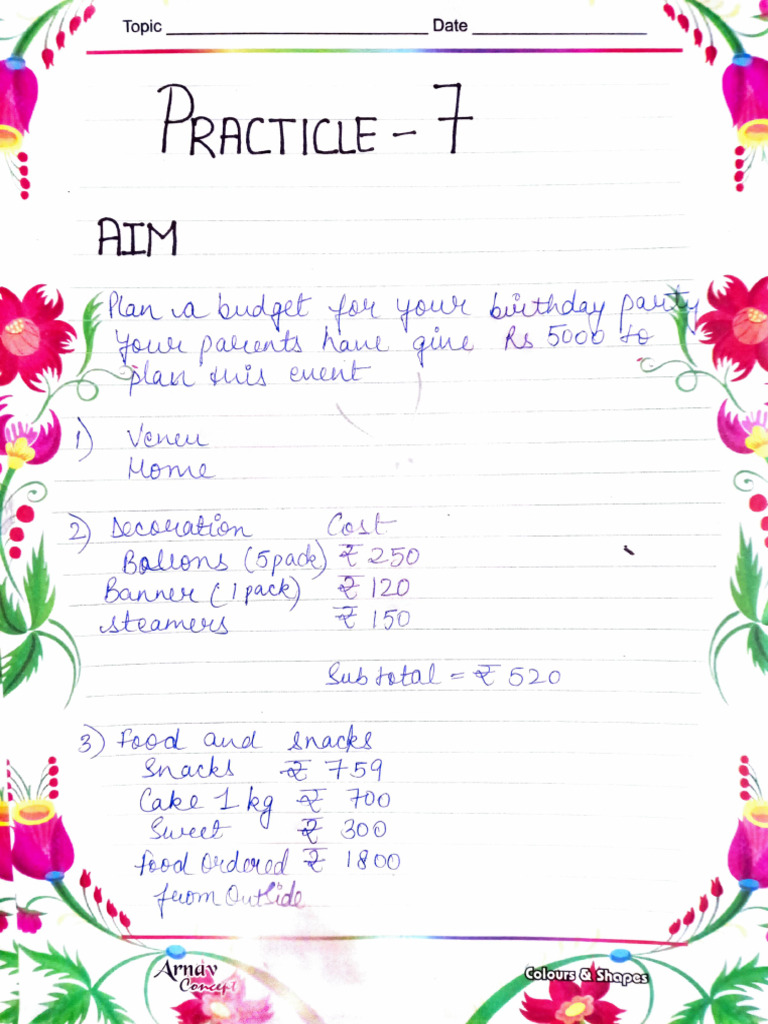 Topic Date
PRACTICLE - 7
AIM
Plan a budget for your birthday party
Your parents have give Rs 5000 to
plan this event
1) Veneu
Home
2) Decoration Cost
Ballons (5 pack) ₹ 250
Banner (1 pack) ₹ 120
steamers ₹ 150
Sub total = ₹ 520
3) Food and snacks
Snacks ₹ 759
Cake 1 kg ₹ 700
Sweet ₹ 300
food Ordered ₹ 1800
from Outside
Arnav
Concept
Colours & Shapes